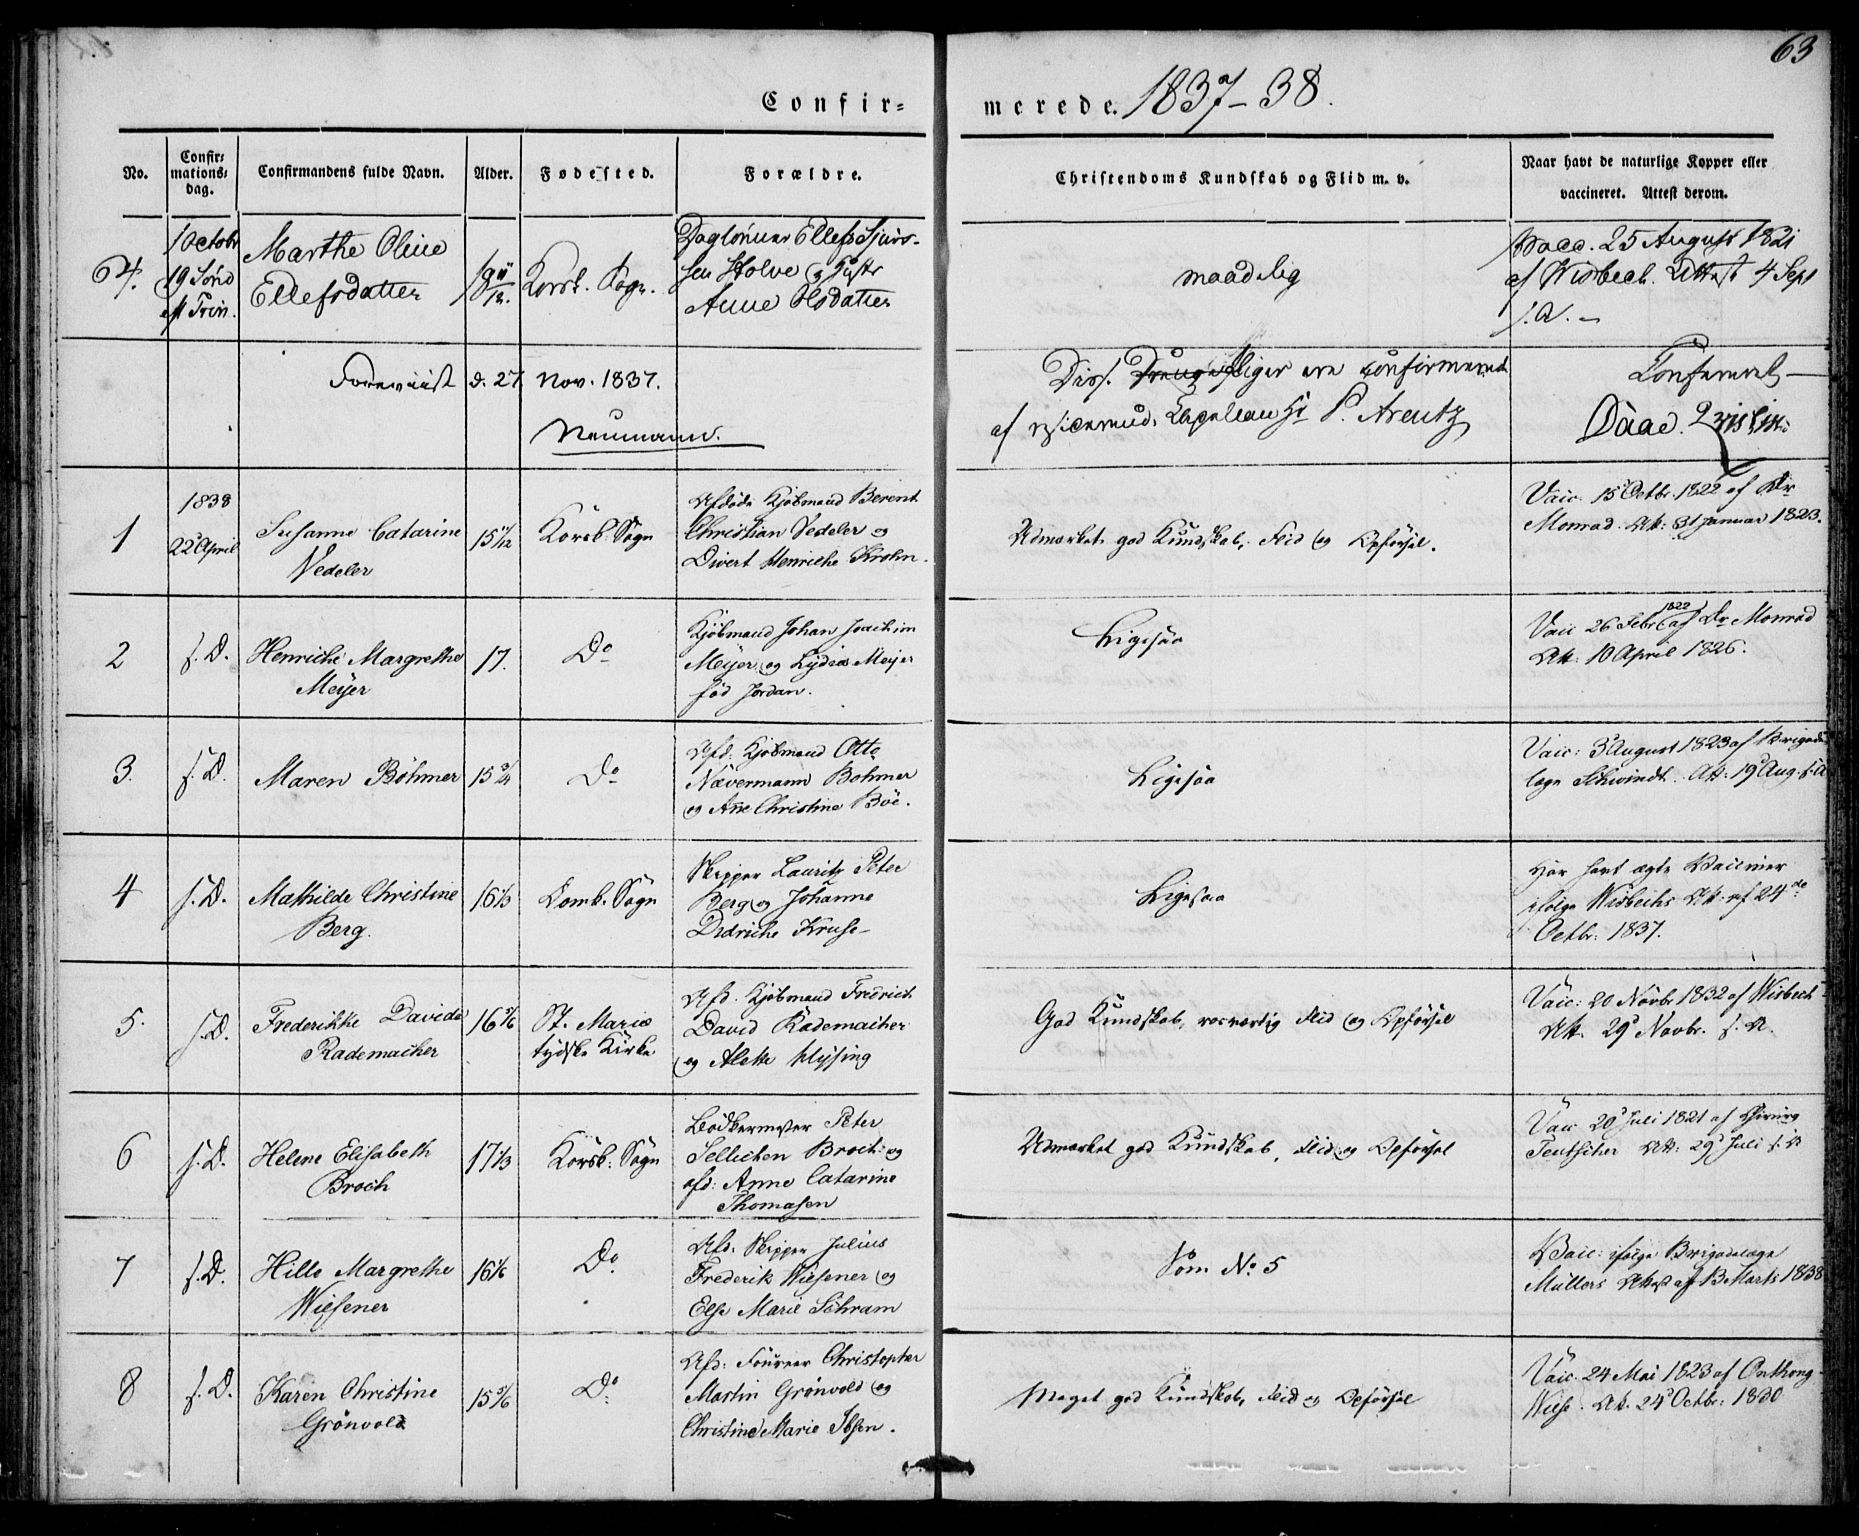 63
Confir=
merede. 1837-38.
No.
Confir=
mations=
dag.
Confirmandens fulde Navn.
Alder.
Fødested.
Forældre.
Christendoms Kundskab og Flid m. v.
Naar havt de naturlige Kopper eller
vaccineret. Attest derom.
64.
1 Octobr
19 Sønd
eft Trin.
Marthe Oline
Ellefsdatter
18 11/12.
Korsk. Sogn.
Daglønner Ellef Sjurs-
sen Holve og Hustr
Anne Olsdatter
maadelig
Vacc. 25 August 1821
af Wisbech. Attest 4 Sept
s. A. -
Foreviist d. 27 Nov. 1837.
Neumann.
Diss. Piger ere confirmeret
af residerend. Capellan Hr P. Arentz
Confereret
Daae. Qvislin
1
1838
22 April
Susanne Catarine
Vedeler
15 11/12
Korsk: Sogn
Afdøde Kjøbmand Berent
Christian Vedeler og
Divert Henriche Krohn.
Udmærket god Kundskab, Flid og Opførsel.
Vacc. 15 Octbr. 1822 af Dr
Monrad. Att: 31 Januar 1823.
2
s. D.
Henriche Margrethe
Meyer
17.
Do
Kjøbmand Johan Joachim
Meyer og Lydia Meyer
fød Jordan.
Ligesaa
Vacc 26 Febr 1822 af Dr Monrad
Att: 10 April 1826.
3.
s. D.
Maren Böhmer
15 3/4
Do
Afd: Kjøbmand Otto
Nævermann Bohmer
og Ane Christine Böe.
Ligesaa
Vacc: 3 August 1823 af Brigade
læge Schwindt. Att: 19 Aug. s. A
4
s. D.
Mathilde Christine
Berg.
16 1/3
Domk. Sogn
Skipper Lauritz Peter
Berg og Johanne
Didriche Kruse-
Ligesaa
Har havt ægte Vacciner
ifølge Wisbechs Att. af 24de
Octbr. 1837.
5.
s. D.
Frederikke Davida
Rademacher
16 5/6
St. Mariæ
tydske Kirke
Afd. Kjøbmand Fredrich
David Rademacher
og Alette Plysing
God Kundskab, roesværdig Flid og Opførsel
Vacc: 20 Novbr 1832 af Wisbech
Att. 29 Novbr. s. A.
6
s. D.
Helene Elisabeth
Broch
17 1/3
Korsk: Sogn
Bødkermester Peter
Sellichen Broch og
afd: Anne Catarine
Thomasen
Udmærket god Kundskab, Flid og Opførsel
Vacc 20 Juli 1821 af Chirurg
Teutscher Att: 29 Juli s. A
7
s. D.
Hille Margrethe
Wiesener
16 1/6
Do
Afd: Skipper Julius
Frederik Wiesener og
Else Marie Schram
Som No 5
Vacc: ifølge Brigadelæge
Müllers Attest af 13 Marts 1838
8
s. D.
Karen Christine
Grönvold
15 5/6
Do
Afd: Foureer Christopher
Martin Grönvold og
Christine Marie Ibsen.
Meget god Kundskab, Flid og Opførsel
Vacc. 24 Mai 1823 af Onthong
Wiese. Att. 24 Octbr: 1830